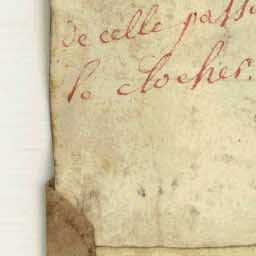 de celle pass
le clocher.